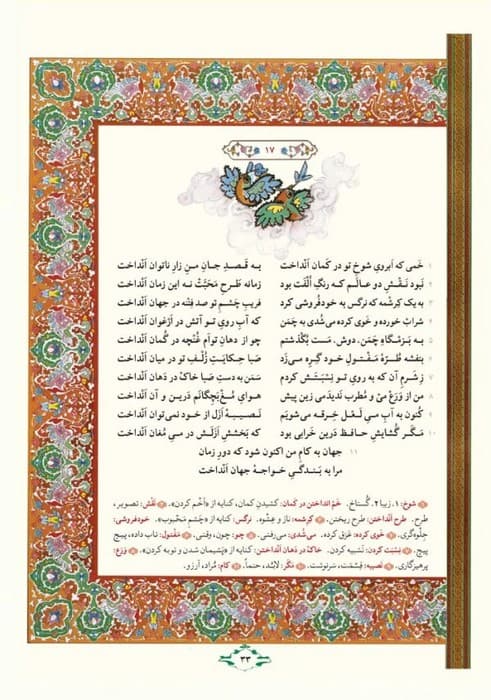 ۱۷
۱ خَمی که اَبرویِ شوخِ تو در کَمان اَنْداخت به قَصدِ جانِ منِ زارِ ناتوان اَنْداخت
۲ نَبود نَقْشِ دو عالَم که رنگِ اُلْفَت بود زَمانه طَرحِ مَحَبَّتْ نه این زَمان اَنْداخت
۳ به یک کِرِشمه که نَرگس به خودفُروشی کرد فَریبِ چَشمِ تو صد فِتْنه در جهان اَنْداخت
۴ شرابْ خورده و خَوی کرده می‌شُدی به چَمَن که آبِ رویِ تو آتش در اَرْغَوان اَنْداخت
۵ به بَزْمگاهِ چَمَن، دوش، مَست بُگْذَشتم چو از دهانِ تواَم غُنْچه در گُمان اَنْداخت
۶ بنفشه طُرّهٔ مَفْتولِ خود گِرِه می‌زَد صَبا حِکایتِ زُلْفِ تو در میان اَنْداخت
۷ زِ شَرمِ آن که به رویِ تو نِسْبَتَش کردم سَمَن به دستِ صَبا خاکْ در دَهان اَنْداخت
۸ من از وَرَع مِیْ و مُطرب نَدیدَمی زین پیش هوایِ مُغْ‌بَچِگانَم دَرین و آن اَنْداخت
۹ کُنون به آبِ میِ لَعْل خِرقه می‌شویَم نَصیبهٔ اَزَل از خود نمی‌توان اَنْداخت
۱۰ مَگَر گُشایشِ حافظ دَرین خَرابی بود که بَخْشِشِ اَزَلَش در میِ مُغان اَنْداخت
۱۱ جهان به کامِ من اکنون شود که دورِ زمان
مرا به بَنْدگیِ خواجهٔ جهان اَنْداخت
۱ شوخ: ۱. زیبا ۲. گُستاخ. خَمْ انْداختن در کَمان: کشیدنِ کمان، کنایه از «اَخْم کردن». ۲ نَقْش: تصویر،
طرح. طرح انْداختن: طرح ریختن. ۳ کِرِشمه: ناز و عِشْوه. نرگس: کنایه از «چَشمِ مَحْبوب». خودفروشی:
جِلْوه‌گری. ۴ خَوی کرده: عَرَق کرده. می‌شُدی: می‌رفتی. ۵ چو: چون، وقتی. ۶ مَفْتول: تاب داده، پیچ
پیچ. ۷ نِسْبَت کردن: تَشْبیه کردن. خاکْ در دَهان انْداختن: کنایه از «پَشیمان شدن و توبه کردن». ۸ وَرَع:
پرهیزگاری. ۹ نَصیبه: قِسْمَت، سَرنوِشت. ۱۰ مَگَر: لابُد، حتماً. ۱۱ کام: مُراد، آرزو.
۳۳